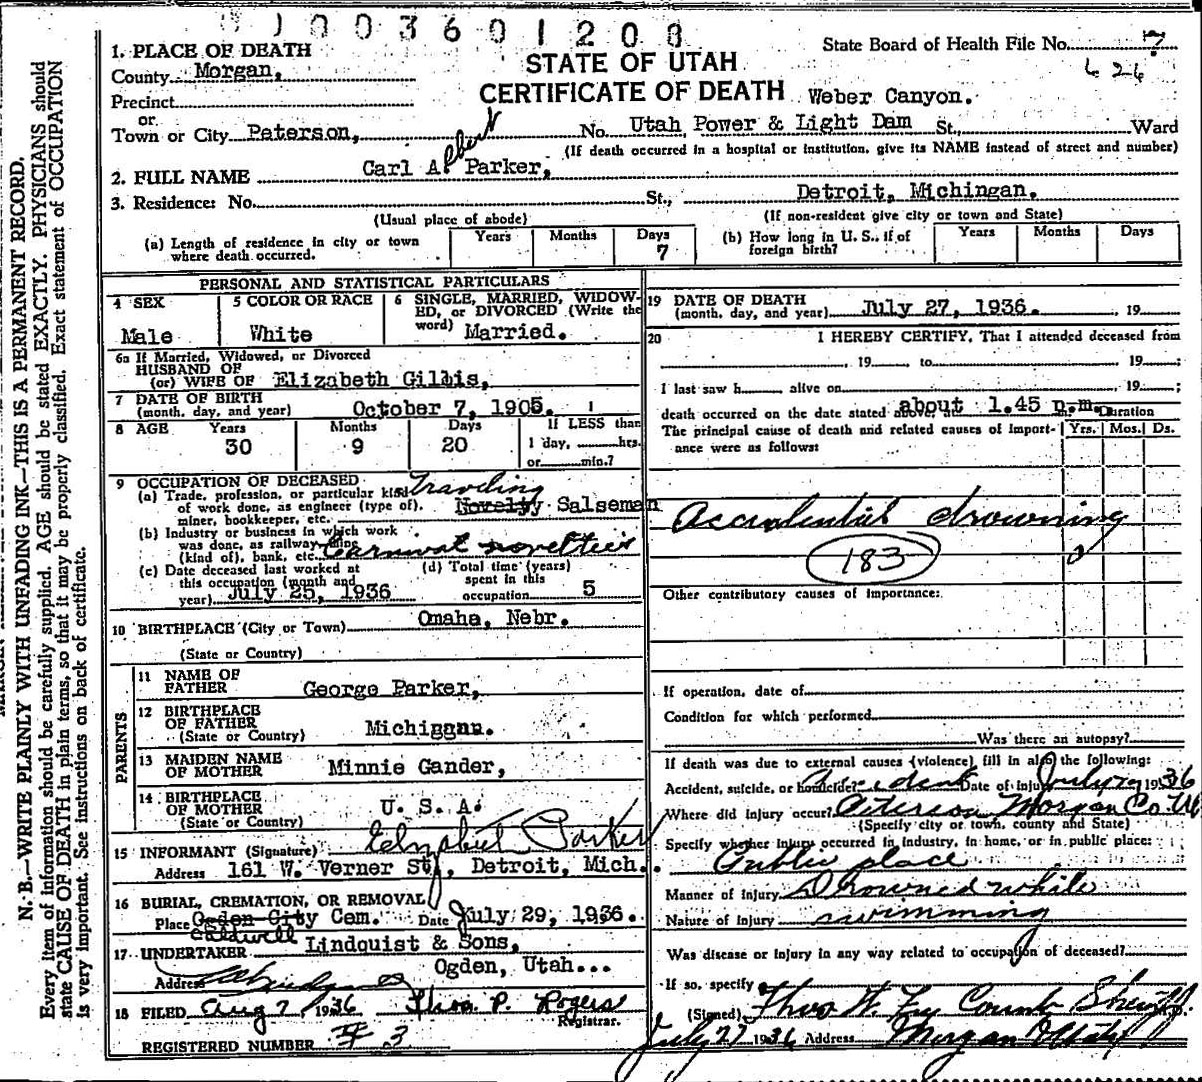 1003601200
1. PLACE OF DEATH
STATE OF UTAH
State Board of Health File No. 7
626
County Morgan,
CERTIFICATE OF DEATH
Weber Canyon.
Precinct
or
Town or City Peterson, No. Utah Power & Light Dam St., Ward
(If death occurred in a hospital or institution, give its NAME instead of street and number)
2. FULL NAME Carl Albert Parker,
3. Residence: No. St., Detroit, Michingan.
(Usual place of abode) (If non-resident give city or town and State)
(a) Length of residence in city or town where death occurred. Years Months Days 7
(b) How long in U. S., if of foreign birth? Years Months Days
PERSONAL AND STATISTICAL PARTICULARS
4 SEX Male
5 COLOR OR RACE White
6 SINGLE, MARRIED, WIDOWED, or DIVORCED (Write the word) Married.
6a If Married, Widowed, or Divorced
HUSBAND OF
(or) WIFE OF Elizabeth Gillis,
7 DATE OF BIRTH
(month, day, and year) October 7, 1905.
8 AGE Years 30 Months 9 Days 20
If LESS than
1 day, hrs.
or min.?
9 OCCUPATION OF DECEASED
(a) Trade, profession, or particular kind
of work done, as engineer (type of),
miner, bookkeeper, etc.
Traveling
Novelty Salseman
(b) Industry or business in which work
was done, as railway
(kind of), bank, etc. Carnival novelties
(c) Date deceased last worked at
this occupation (month and
year) July 25, 1936
(d) Total time (years)
spent in this
occupation 5
10 BIRTHPLACE (City or Town) Omaha, Nebr.
(State or Country)
PARENTS
11 NAME OF
FATHER George Parker,
12 BIRTHPLACE
OF FATHER
(State or Country) Michiggan.
13 MAIDEN NAME
OF MOTHER Minnie Gander,
14 BIRTHPLACE
OF MOTHER
(State or Country) U. S. A.
15 INFORMANT (Signature) Elizabeth Parker
Address 161 W. Verner St, Detroit, Mich.
16 BURIAL, CREMATION, OR REMOVAL
Place Ogden City Cem. Date July 29, 1936.
Caldwell
17 UNDERTAKER Lindquist & Sons,
Address Ogden, Utah...
18 FILED Aug 7 1936 Thos. P. Rogers
Registrar.
REGISTERED NUMBER # 3
19 DATE OF DEATH
(month, day, and year) July 27, 1936. , 19
20 I HEREBY CERTIFY, That I attended deceased from
, 19 to 19 ;
I last saw h alive on , 19 ;
death occurred on the date stated above, at about 1.45 p.m. Duration
The principal cause of death and related causes of importance were as follows: Yrs. Mos. Ds.
Accidential drowning
183
Other contributory causes of importance:
If operation, date of
Condition for which performed
Was there an autopsy?
If death was due to external causes (violence) fill in also the following:
Accident, suicide, or homicide? Accident Date of injury July 27 1936
Where did injury occur? Peterson Morgan Co. Ut
(Specify city or town, county and State)
Specify whether injury occurred in industry, in home, or in public place:
Public place
Manner of injury Drowned while
Nature of injury swimming
Was disease or injury in any way related to occupation of deceased?
If so, specify
(Signed) Thos W. Fry County Sheriff.
July 27 1936 Address Morgan Utah
N. B.—WRITE PLAINLY WITH UNFADING INK—THIS IS A PERMANENT RECORD.
Every item of information should be carefully supplied. AGE should be stated EXACTLY. PHYSICIANS should
state CAUSE OF DEATH in plain terms, so that it may be properly classified. Exact statement of OCCUPATION
is very important. See instructions on back of certificate.